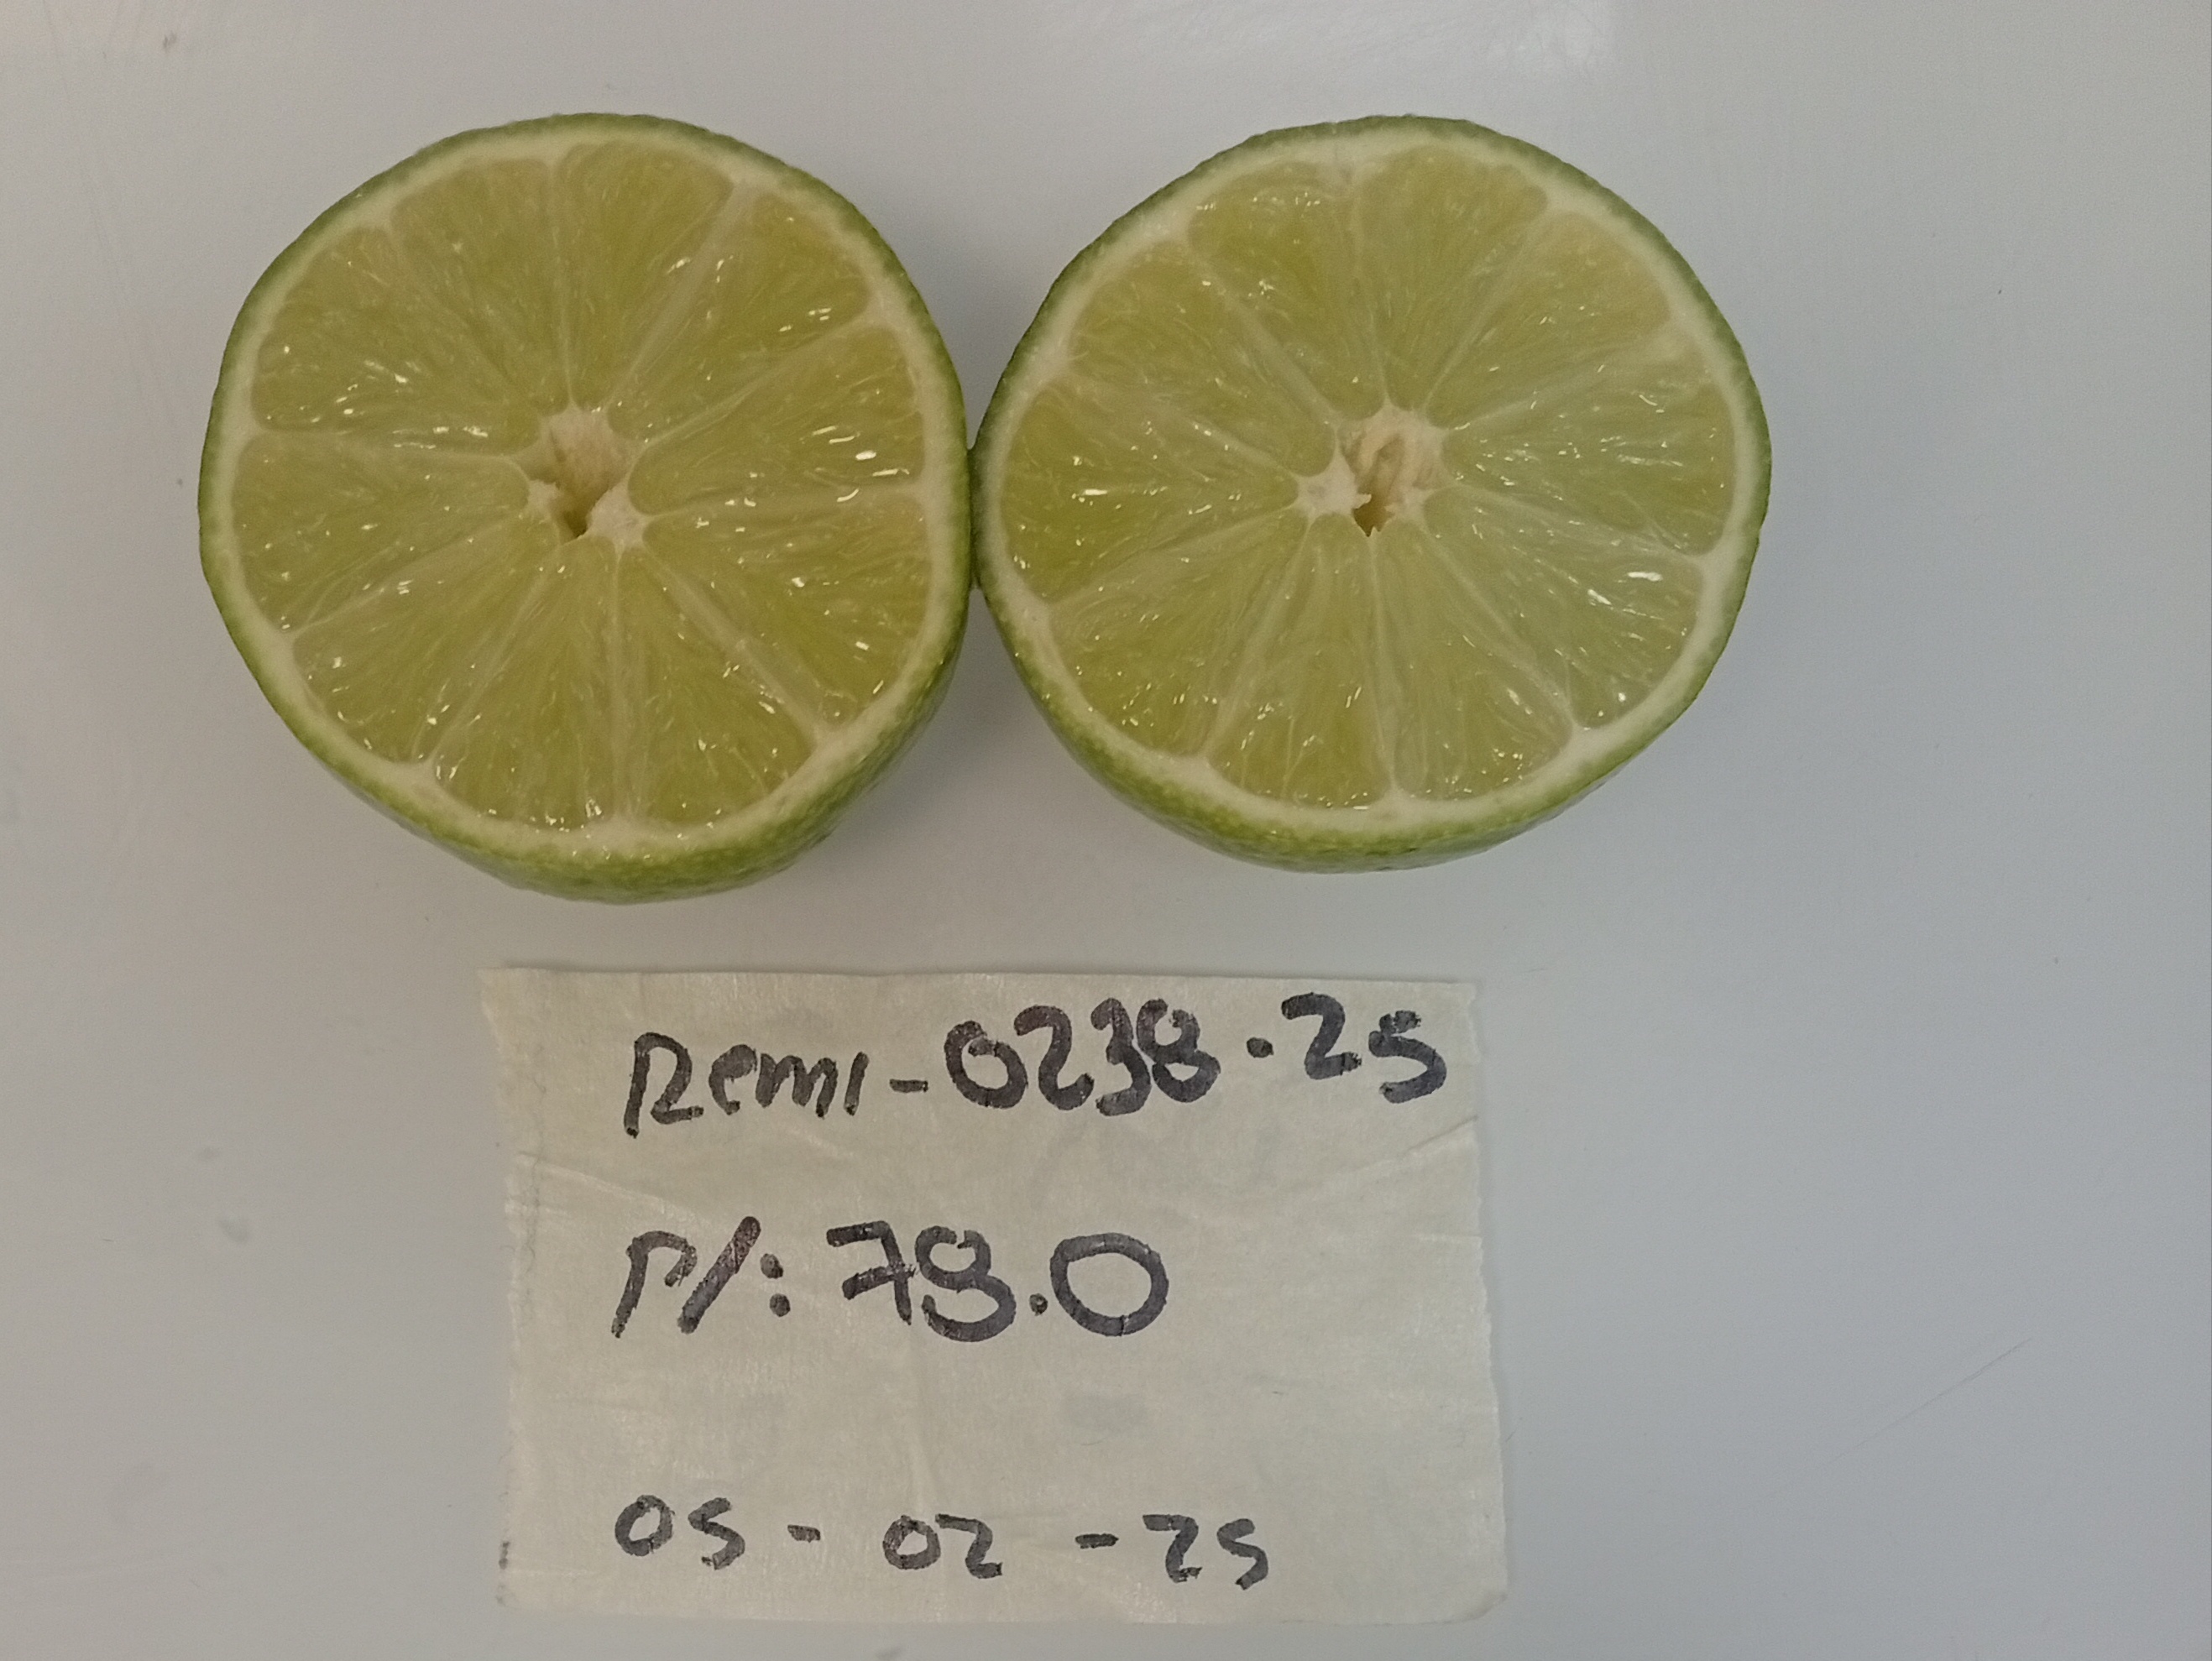 Remi-0238-25
P/: 78.0
05-02-25